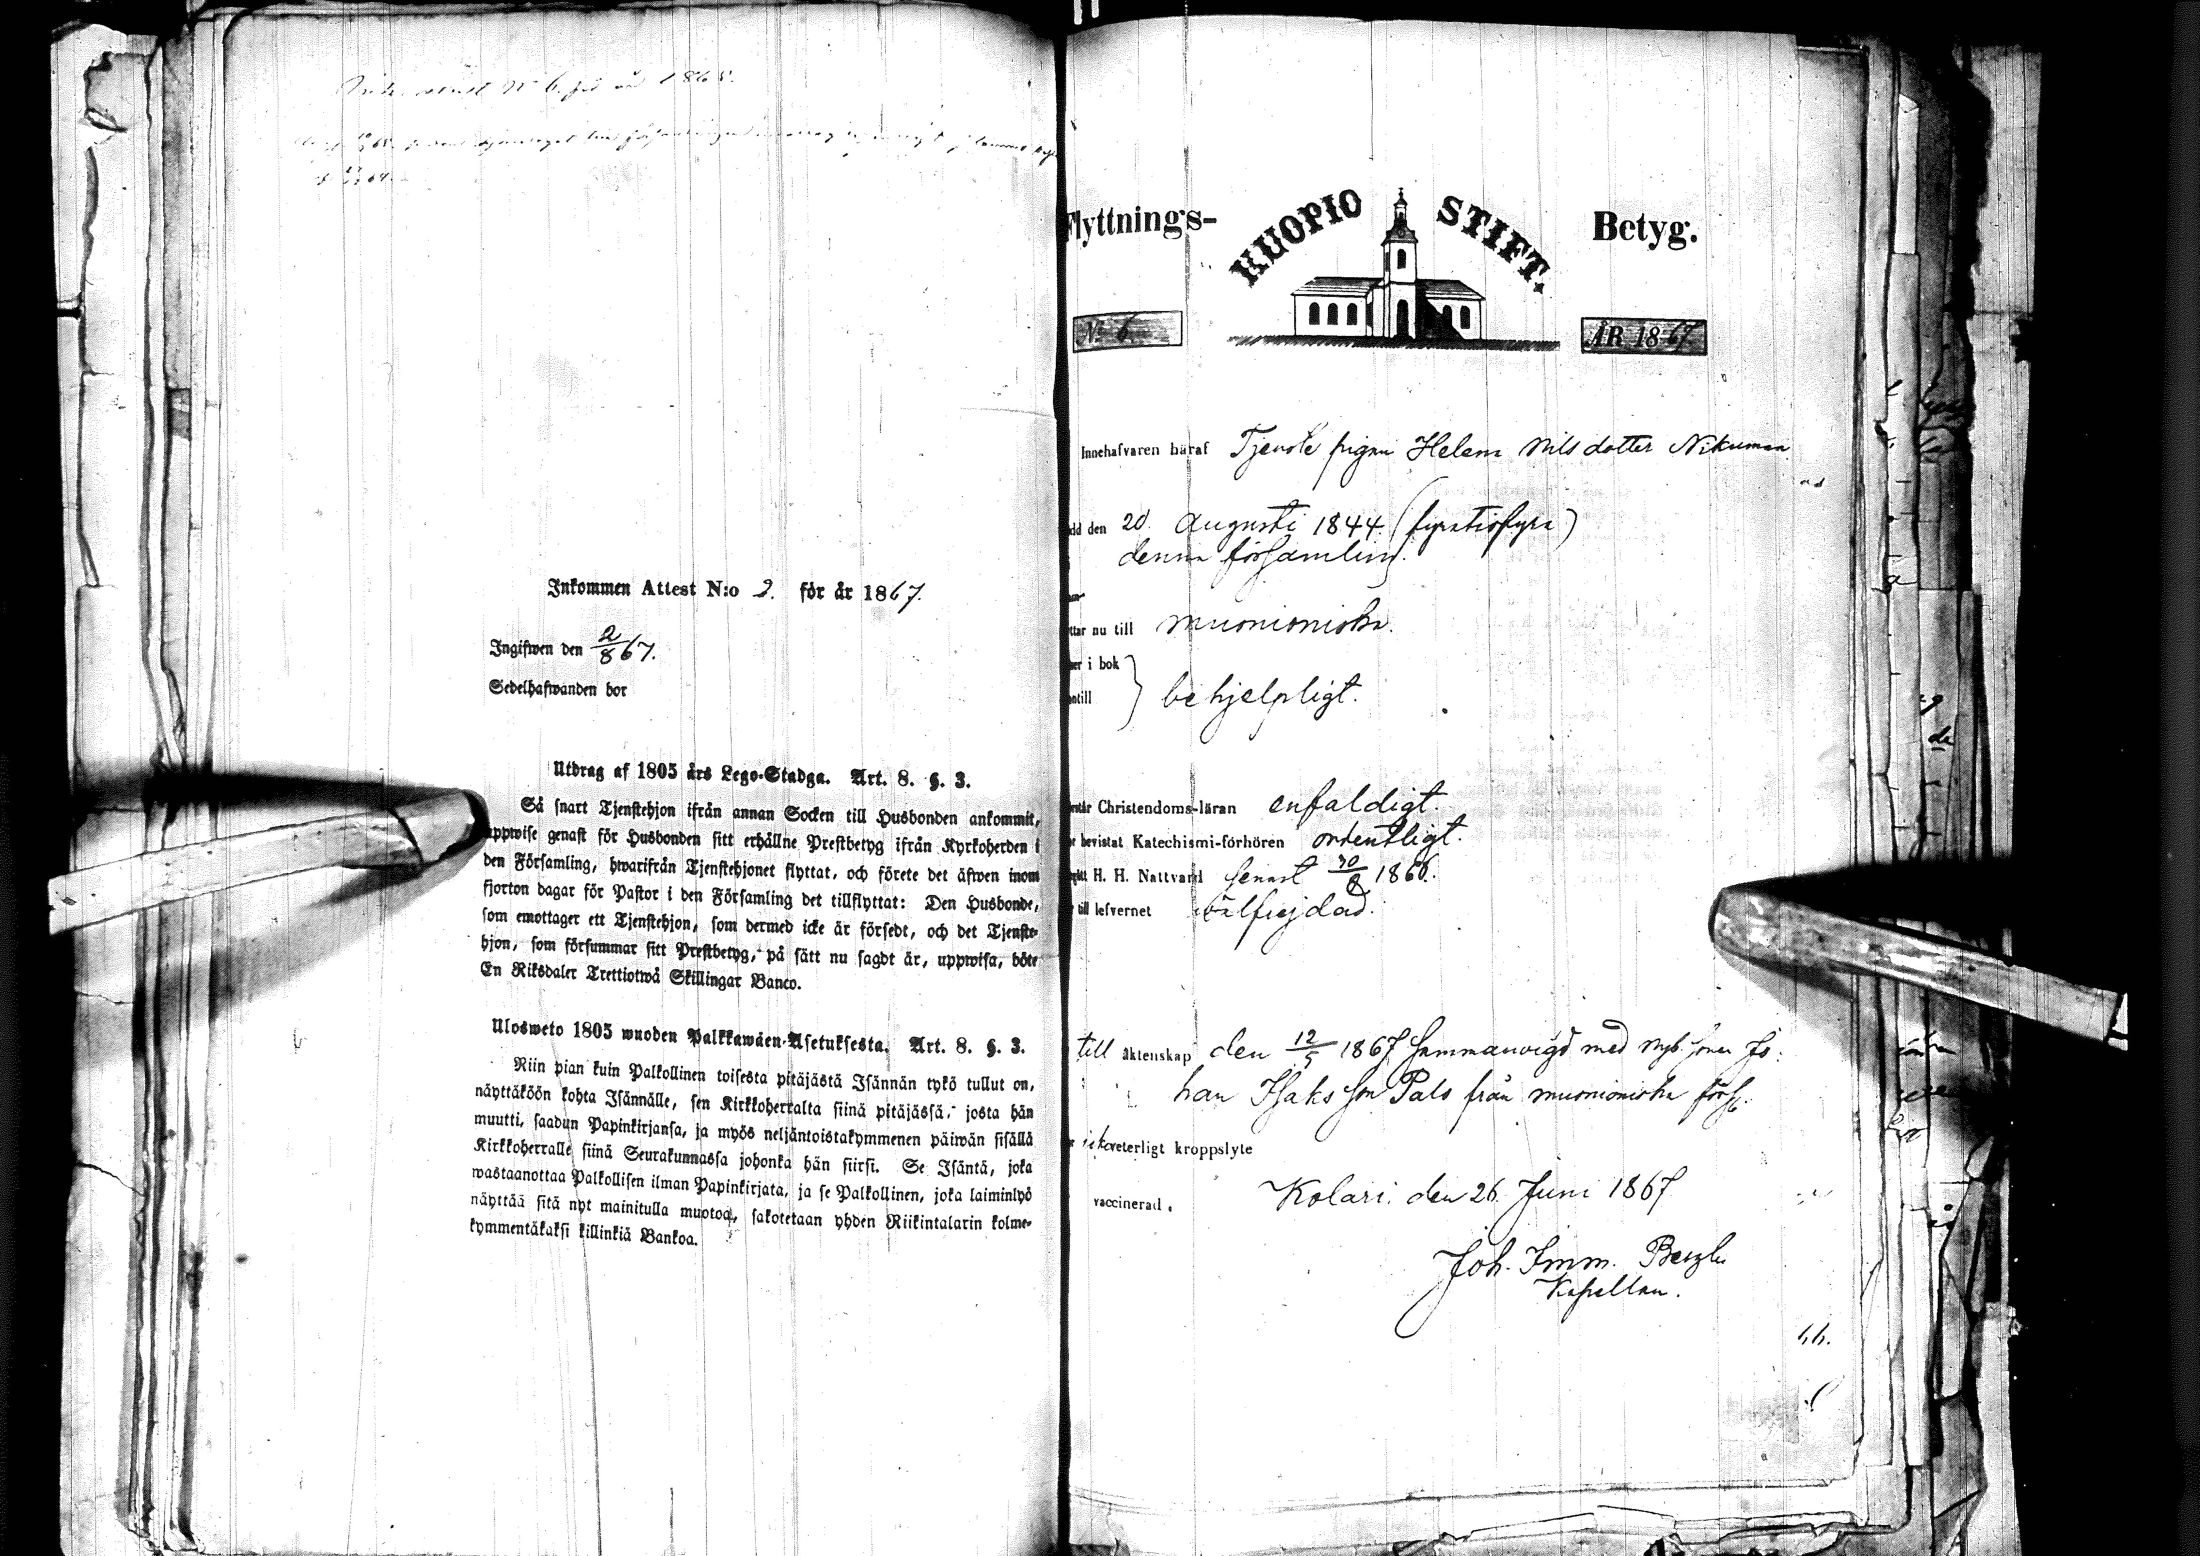 för år 1865.
Inkommen Attest N:o 2. för år 1867.
Ingifwen den 2/8 67.
Sedelhafwanden bor
Utdrag af 1805 års Lego-Stadga. Art. 8. §. 3.
Så snart Tjenstehjon ifrån annan Socken till Husbonden ankommit,
uppwise genast för Husbonden sitt erhållne Prestbetyg ifrån Kyrkoherden i
den Församling, hwarifrån Tjenstehjonet flyttat, och förete det äfwen inom
fjorton dagar för Pastor i den Församling det tillflyttat: Den Husbonde,
som emottager ett Tjenstehjon, som dermed icke är försedt, och det Tjenste-
hjon, som försummar sitt Prestbetyg, på sätt nu sagdt är, uppwisa, böte
En Riksdaler Trettiotwå Skillingar Banco.
Ulosweto 1805 wuoden Palkkawäen-Asetuksesta. Art. 8. §. 3.
Niin pian kuin Palkollinen toisesta pitäjästä Isännän tykö tullut on,
näyttäköön kohta Isännälle, sen Kirkkoherralta siinä pitäjässä, josta hän
muutti, saadun Papinkirjansa, ja myös neljäntoistakymmenen päiwän sisällä
Kirkkoherralle siinä Seurakunnassa johonka hän siirsi. Se Isäntä, joka
wastaanottaa Palkollisen ilman Papinkirjata, ja se Palkollinen, joka laiminlyö
näyttää sitä nyt mainitulla muotoa, sakotetaan yhden Riikintalarin kolme-
kymmentäkaksi killinkiä Bankoa.
Flyttnings- KUOPIO STIFT. Betyg.
No 6 ÅR 1867
Innehafvaren häraf Tjenste pigan Helena Nilsdotter Nikuman
dd den 20. Augusti 1844 (fyratiofyra)
denna församling.
ttar nu till Muonioniska.
er i bok
ntill } behjelpligt.
Christendoms-läran enfaldigt.
bevistat Katechismi-förhören ordentligt.
H. H. Nattvard senast 30/8 1866.
till lefvernet välfrejdad.
till äktenskap den 12/5 1867 sammanvigd med Nyb. sonen Jo-
han Isaksson Palo från Muonioniska förs.
icke veterligt kroppslyte
vaccinerad. Kolari den 26 Juni 1867
Joh. Imm.
Kapellan.